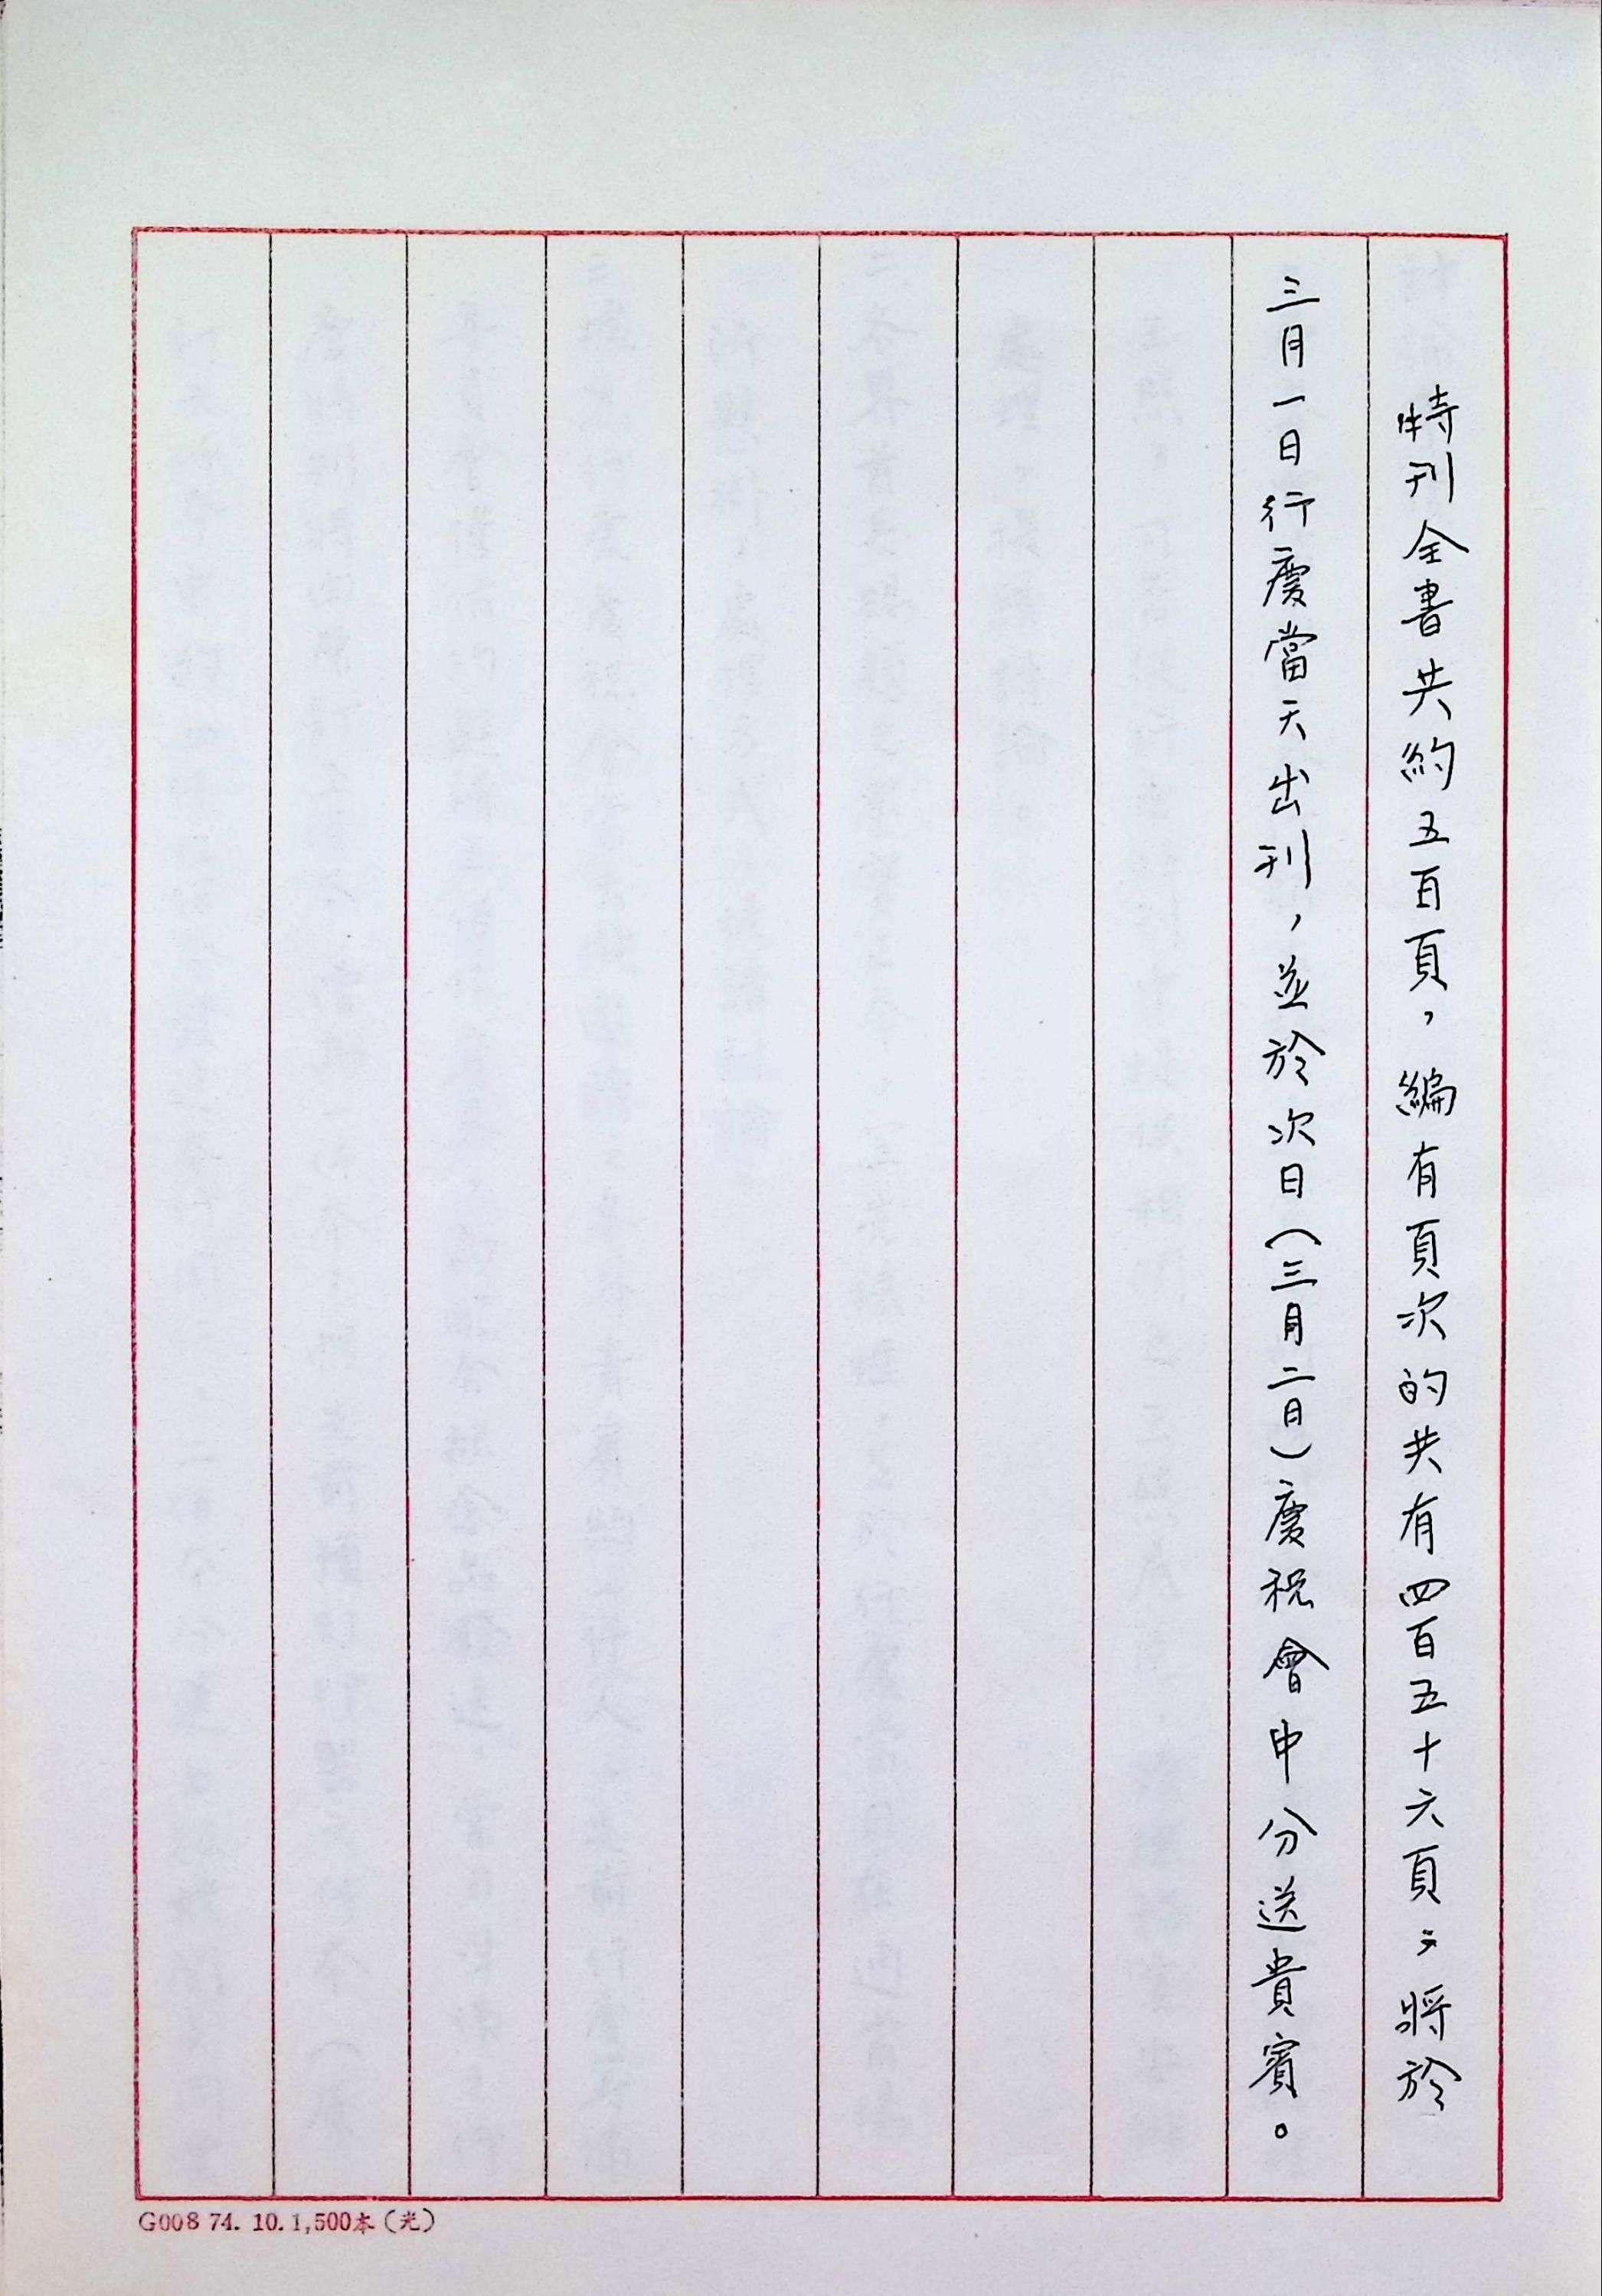 特刊全書共約五百頁，編有頁次的共有四百五十六頁，將於
三月一日行慶當天出刊，並於次日（三月二日）慶祝會中分送貴賓。
G008 74.10.1,500本（光）